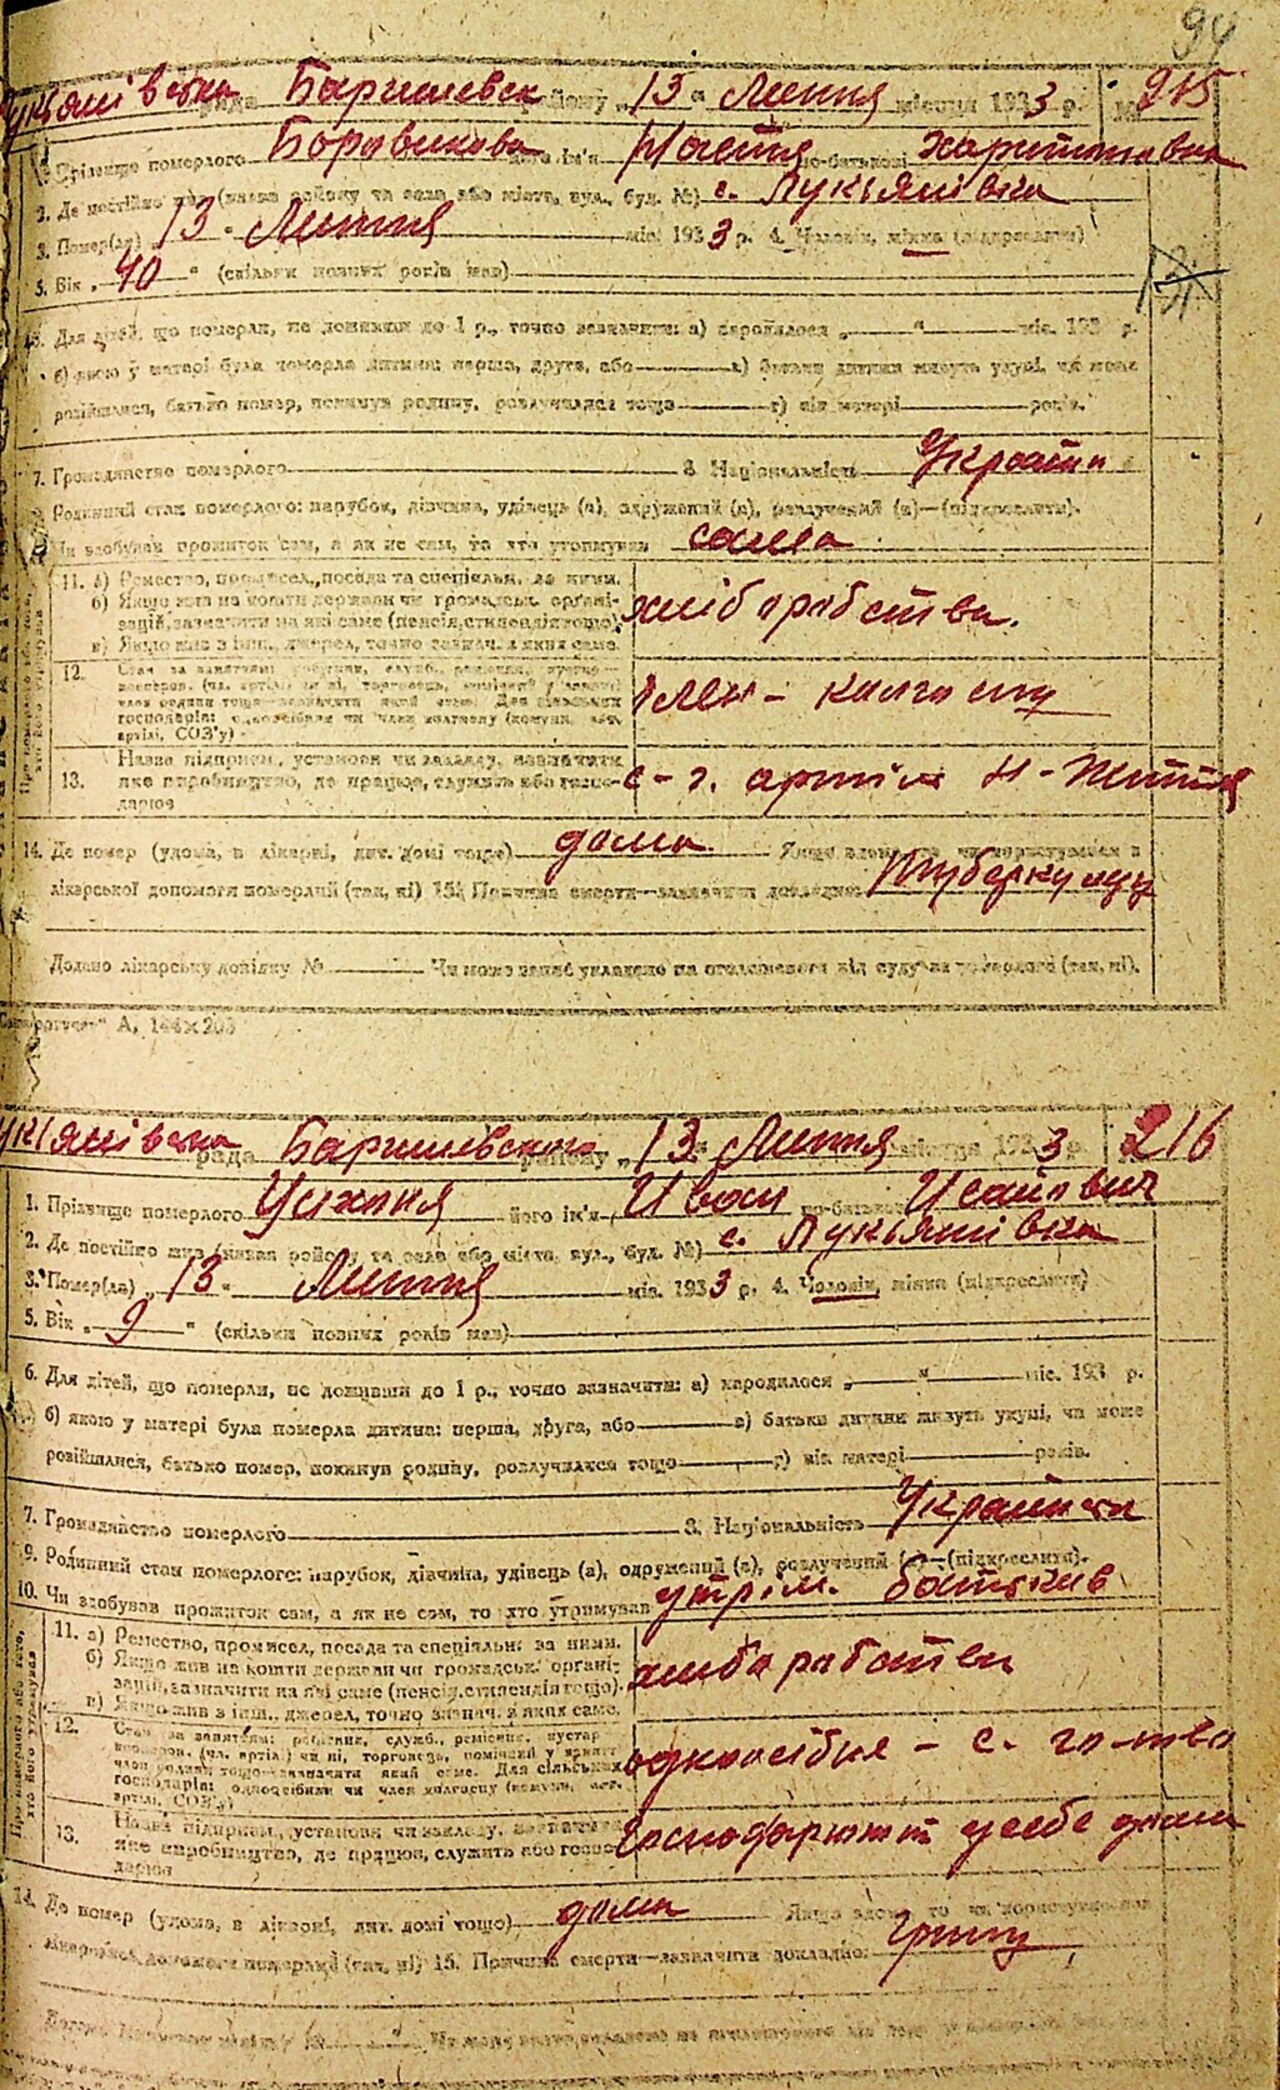 94
Лукьянівська рада Баришевськ району „13" Липня місяця 1933 р. № 215
1. Прізвище померлого Боровикова його ім'я Настя по-батькові Харитоновна
2. Де постійно жив (назва району та села або міста, вул., буд. №) с. Лукьянівка
3. Помер(ла) „13" Липня міс. 1933 р. 4. Чоловік, жінка (підкреслити)
5. Вік „40" (скільки повних років мав)
6. Для дітей, що померли, не доживши до 1 р., точно зазначити: а) народилося „ " міс. 193 р.
б) якою у матері була померла дитина: перша, друга, або в) батьки дитини живуть укупі, чи може
розійшлися, батько помер, покинув родину, розлучилися тощо г) вік матері років.
7. Громадянство померлого 8. Національність
Родинний стан померлого: парубок, дівчина, удівець (а), одружений (а), розлучений (а)—(підкреслити).
Чи здобував прожиток сам, а як не сам, то хто утримував сама
11. а) Ремество, промисел, посада та спеціяльн. за ними.
б) Якщо жив на кошти держави чи громадськ. органі-
зацій, зазначити на які саме (пенсія, стипендія тощо).
в) Якщо жив з інш. джерел, точно зазнач. з яких саме.
хліборобство.
12.
господарів: одноосібник чи член колгоспу (комуни, с.-г.
артілі, СОЗ'у)
член - колгоспу
13. Назва підприєм., установи чи закладу, зазначити
яке виробництво, де працює, служить або госпо-
дарює
с-г. артіль Н-Життя
14. Де помер (удома, в лікарні, дит. домі тощо) дома Якщо вдома, то чи користувався з
лікарської допомоги померлий (так, ні) 15. Причина смерти—зазначити докладно:
Додано лікарську довідку № Чи може запис укладено на оголошення від суду за померлого (так, ні).
А, 144×203
Лукіянівська рада Баришевського району „13" Липня місяця 1933 р. 216
1. Прізвище померлого його ім'я Иван по-батькові Исайович
2. Де постійно жив (назва району та села або міста, вул., буд. №) с. Лукьянівка
3. Помер(ла) „13" Липня міс. 1933 р. 4. Чоловік, жінка (підкреслити)
5. Вік „9" (скільки повних років мав)
6. Для дітей, що померли, не доживши до 1 р., точно зазначити: а) народилося „ " міс. 193 р.
б) якою у матері була померла дитина: перша, друга, або в) батьки дитини живуть укупі, чи може
розійшлися, батько помер, покинув родину, розлучилися тощо г) вік матері років.
7. Громадянство померлого 8. Національність
9. Родинний стан померлого: парубок, дівчина, удівець (а), одружений (а), розлучений (а)—(підкреслити).
10. Чи здобував прожиток сам, а як не сам, то хто утримував утрим. батьків
11. а) Ремество, промисел, посада та спеціяльн. за ними.
б) Якщо жив на кошти держави чи громадськ. органі-
зацій, зазначити на які саме (пенсія, стипендія тощо).
в) Якщо жив з інш. джерел, точно зазнач. з яких саме.
хліборобство
12. Стан за занятям: робітник, служб., ремісник, кустар
член родини тощо—зазначити який саме. Для сільських
господарів: одноосібник чи член колгоспу (комуни, с.-г.
артілі, СОЗ'у)
одноосібне - с. го-тво
13. Назва підприєм., установи чи закладу, зазначити
яке виробництво, де працює, служить або госпо-
дарює
у себе дома
14. Де помер (удома, в лікарні, дит. домі тощо) дома Якщо вдома, то чи користувався
лікарської допомоги померлий (так, ні) 15. Причина смерти—зазначити докладно: